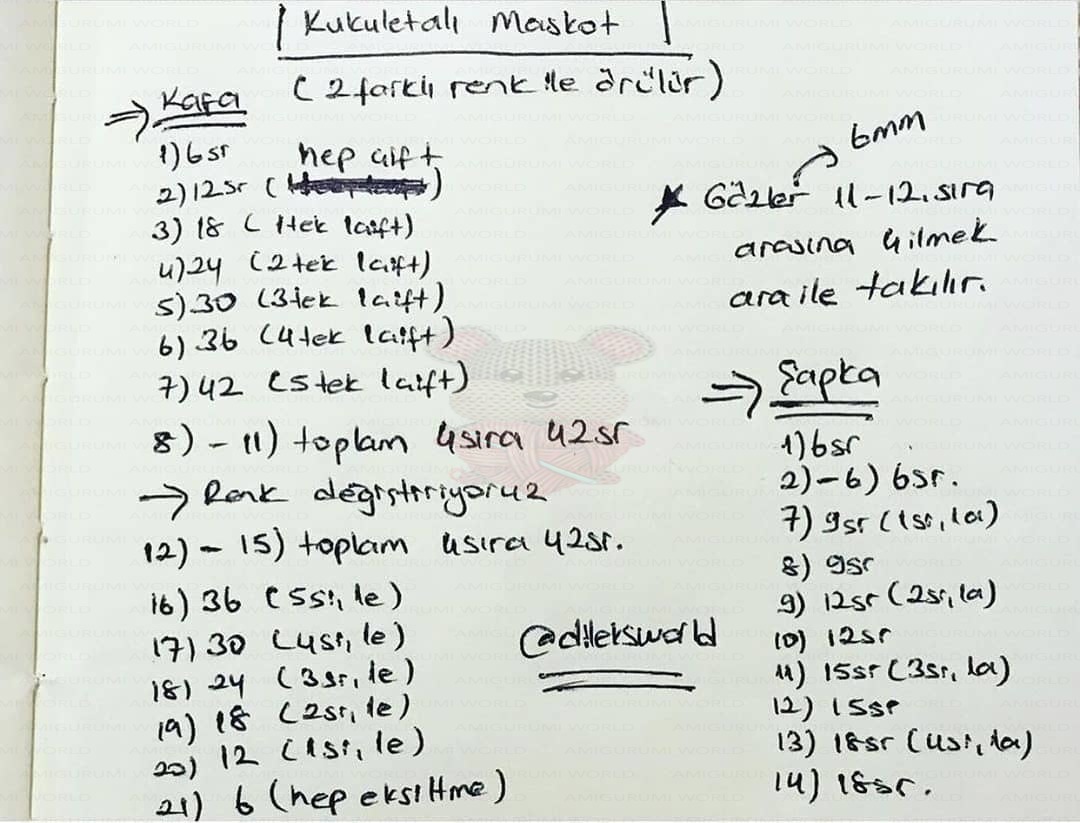 Kukuletalı Maskot
(2 farklı renk ile örülür)
⇒ Kafa
1) 6sr
2) 12sr ( hep çift )
3) 18 ( 1tek 1çift)
4) 24 (2 tek 1çift)
5) 30 (3tek 1çift)
6) 36 (4tek 1çift)
7) 42 (5 tek 1çift)
8) - 11) toplam 4sıra 42sr
→ Renk değiştiriyoruz
12) - 15) toplam 4sıra 42sr.
16) 36 (5sı, 1e)
17) 30 (4sı, 1e)
18) 24 (3sı, 1e)
19) 18 (2sı, 1e)
20) 12 (1sı, 1e)
21) 6 (hep eksiltme)
6mm
Gözler 11-12.sıra
arasına 4ilmek
ara ile takılır.
⇒ Şapka
1) 6sr
2) - 6) 6sr.
7) 9sr (1sı, 1a)
8) 9sr
9) 12sr (2sı, 1a)
10) 12sr
11) 15sr (3sı, 1a)
12) 15sr
13) 18sr (4sı, 1a)
14) 18sr.
@dileksworld
AMIGURUMI WORLD